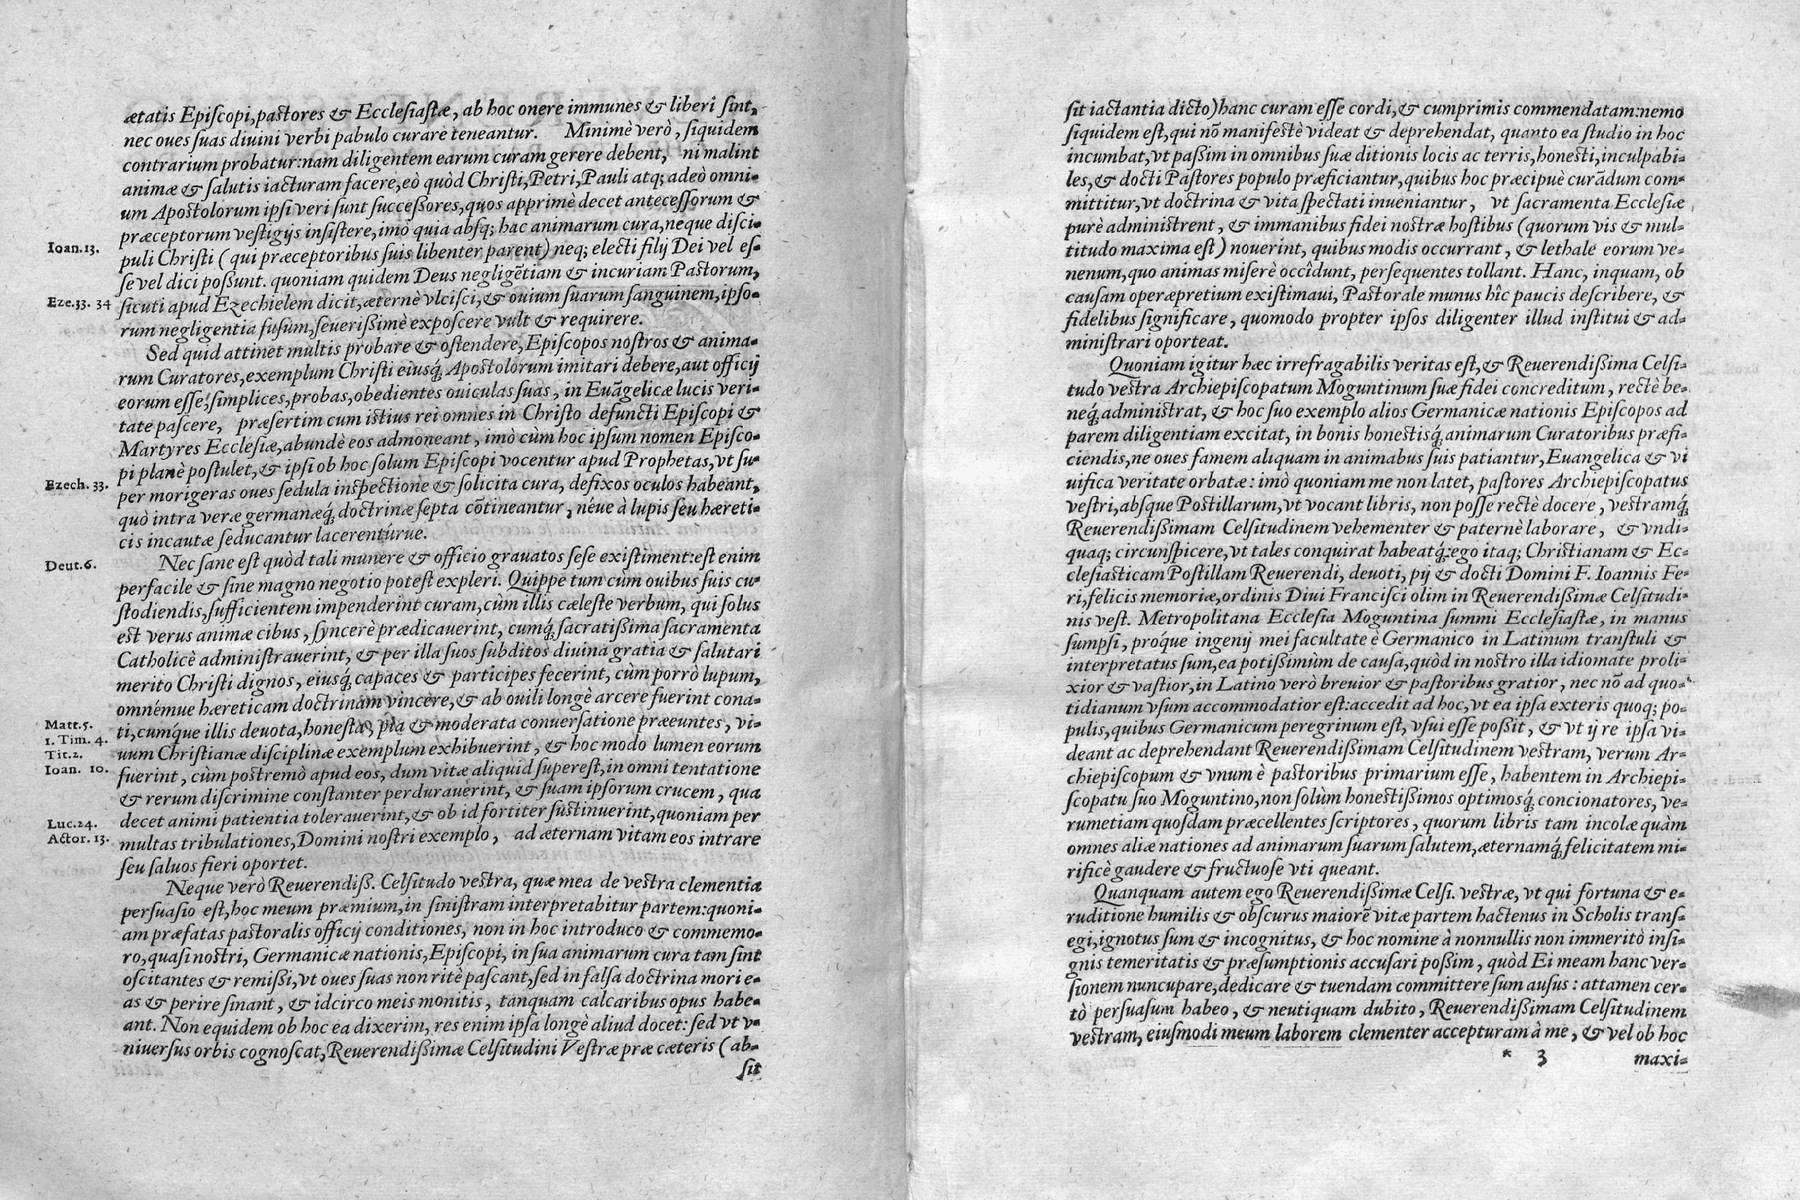 ætatis Episcopi, pastores & Ecclesiastæ, ab hoc onere immunes & liberi sint,
nec oues suas diuini verbi pabulo curare teneantur. Minimè verò, siquidem
contrarium probatur: nam diligentem earum curam gerere debent, ni malint
animæ & salutis iacturam facere, eò quòd Christi, Petri, Pauli atq; adeò omni-
um Apostolorum ipsi veri sunt successores, quos apprimè decet antecessorum &
præceptorum vestigijs insistere, imò quia absq; hac animarum cura, neque disci-
Ioan.13.
puli Christi (qui præceptoribus suis libenter parent) neq; electi filij Dei vel es-
se vel dici possunt. quoniam quidem Deus negligẽtiam & incuriam Pastorum,
Eze.33. 34
sicuti apud Ezechielem dicit, æternè vlcisci, & ouium suarum sanguinem, ipso-
rum negligentia fusum, seuerissimè exposcere vult & requirere.
Sed quid attinet multis probare & ostendere, Episcopos nostros & anima-
rum Curatores, exemplum Christi eiusq́; Apostolorum imitari debere, aut officij
eorum esse, simplices, probas, obedientes ouiculas suas, in Euãgelicæ lucis veri-
tate pascere, præsertim cum istius rei omnes in Christo defuncti Episcopi &
Martyres Ecclesiæ, abundè eos admoneant, imò cùm hoc ipsum nomen Episco-
pi planè postulet, & ipsi ob hoc solum Episcopi vocentur apud Prophetas, vt su-
Ezech. 33.
per morigeras oues sedula inspectione & solicita cura, defixos oculos habeant,
quò intra veræ germanæq́; doctrinæ septa cõtineantur, néue à lupis seu hæreti-
cis incautæ seducantur lacerentúrue.
Deut.6.
Nec sane est quòd tali munere & officio grauatos sese existiment: est enim
perfacile & sine magno negotio potest expleri. Quippe tum cùm ouibus suis cu-
stodiendis, sufficientem impenderint curam, cùm illis cæleste verbum, qui solus
est verus animæ cibus, syncerè prædicauerint, cumq́; sacratissima sacramenta
Catholicè administrauerint, & per illa suos subditos diuina gratia & salutari
merito Christi dignos, eiusq́; capaces & participes fecerint, cùm porrò lupum,
omnémue hæreticam doctrinam vincere, & ab ouili longè arcere fuerint cona-
Matt.5.
ti, cumq́ue illis deuota, honesta, pia & moderata conuersatione præeuntes, vi-
1. Tim. 4.
Tit.2.
uum Christianæ disciplinæ exemplum exhibuerint, & hoc modo lumen eorum
Ioan. 10.
fuerint, cùm postremò apud eos, dum vitæ aliquid superest, in omni tentatione
& rerum discrimine constanter perdurauerint, & suam ipsorum crucem, qua
Luc.24.
decet animi patientia tolerauerint, & ob id fortiter sustinuerint, quoniam per
Actor. 13.
multas tribulationes, Domini nostri exemplo, ad æternam vitam eos intrare
seu saluos fieri oportet.
Neque verò Reuerendiss. Celsitudo vestra, quæ mea de vestra clementia
persuasio est, hoc meum præmium, in sinistram interpretabitur partem: quoni-
am præfatas pastoralis officij conditiones, non in hoc introduco & commemo-
ro, quasi nostri, Germanicæ nationis, Episcopi, in sua animarum cura tam sint
oscitantes & remissi, vt oues suas non ritè pascant, sed in falsa doctrina mori e-
as & perire sinant, & idcirco meis monitis, tanquam calcaribus opus habe-
ant. Non equidem ob hoc ea dixerim, res enim ipsa longè aliud docet: sed vt v-
niuersus orbis cognoscat, Reuerendissimæ Celsitudini Vestræ præ cæteris (ab-
sit
sit iactantia dicto) hanc curam esse cordi, & cumprimis commendatam: nemo
siquidem est, qui nõ manifestè videat & deprehendat, quanto ea studio in hoc
incumbat, vt passim in omnibus suæ ditionis locis ac terris, honesti, inculpabi-
les, & docti Pastores populo præficiantur, quibus hoc præcipuè curãdum com-
mittitur, vt doctrina & vita spectati inueniantur, vt sacramenta Ecclesiæ
purè administrent, & immanibus fidei nostræ hostibus (quorum vis & mul-
titudo maxima est) nouerint, quibus modis occurrant, & lethale eorum ve-
nenum, quo animas miserè occîdunt, persequentes tollant. Hanc, inquam, ob
causam operæpretium existimaui, Pastorale munus hîc paucis describere, &
fidelibus significare, quomodo propter ipsos diligenter illud institui & ad-
ministrari oporteat.
Quoniam igitur hæc irrefragabilis veritas est, & Reuerendissima Celsi-
tudo vestra Archiepiscopatum Moguntinum suæ fidei concreditum, rectè be-
neq́; administrat, & hoc suo exemplo alios Germanicæ nationis Episcopos ad
parem diligentiam excitat, in bonis honestisq́; animarum Curatoribus præfi-
ciendis, ne oues famem aliquam in animabus suis patiantur, Euangelica & vi
uifica veritate orbatæ: imò quoniam me non latet, pastores Archiepiscopatus
vestri, absque Postillarum, vt vocant libris, non posse rectè docere, vestramq́;
Reuerendissimam Celsitudinem vehementer & paternè laborare, & vndi-
quaq; circunspicere, vt tales conquirat habeatq́;: ego itaq; Christianam & Ec-
clesiasticam Postillam Reuerendi, deuoti, pij & docti Domini F. Ioannis Fe-
ri, felicis memoriæ, ordinis Diui Francisci olim in Reuerendissimæ Celsitudi-
nis vest. Metropolitana Ecclesia Moguntina summi Ecclesiastæ, in manus
sumpsi, proq́ue ingenij mei facultate è Germanico in Latinum transtuli &
interpretatus sum, ea potissimùm de causa, quòd in nostro illa idiomate proli-
xior & vastior, in Latino verò breuior & pastoribus gratior, nec nõ ad quo-
tidianum vsum accommodatior est: accedit ad hoc, vt ea ipsa exteris quoq; po-
pulis, quibus Germanicum peregrinum est, vsui esse possit, & vt ij re ipsa vi-
deant ac deprehendant Reuerendissimam Celsitudinem vestram, verum Ar-
chiepiscopum & vnum è pastoribus primarium esse, habentem in Archiepi-
scopatu suo Moguntino, non solùm honestissimos optimosq́; concionatores, ve-
rumetiam quosdam præcellentes scriptores, quorum libris tam incolæ quàm
omnes aliæ nationes ad animarum suarum salutem, æternamq́; felicitatem mi-
rificè gaudere & fructuose vti queant.
Quanquam autem ego Reuerendissimæ Celsi. vestræ, vt qui fortuna & e-
ruditione humilis & obscurus maiorẽ vitæ partem hactenus in Scholis trans-
egi, ignotus sum & incognitus, & hoc nomine à nonnullis non immeritò insi-
gnis temeritatis & præsumptionis accusari possim, quòd Ei meam hanc ver-
sionem nuncupare, dedicare & tuendam committere sum ausus: attamen cer-
tò persuasum habeo, & neutiquam dubito, Reuerendissimam Celsitudinem
vestram, eiusmodi meum laborem clementer accepturam à me, & vel ob hoc
* 3 maxi-